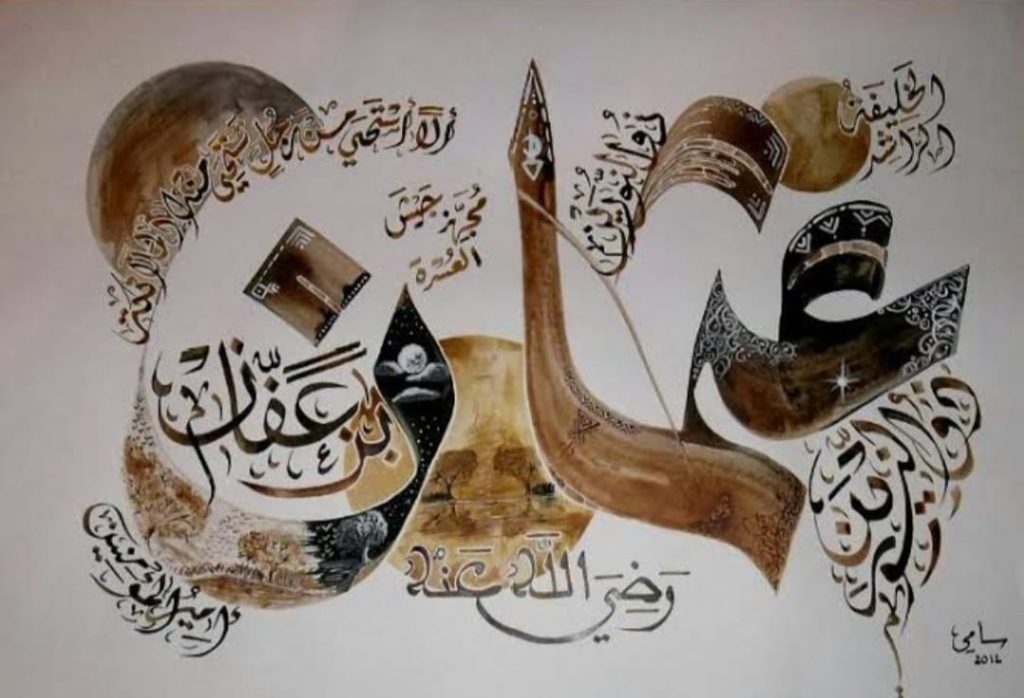 الخليفة
الراشد
ذو النورين
ألا أستحي من رجل تستحي منه الملائكة
مجهز جيش
العسرة
عثمان
بن عفان
ذو النورين
رضي الله عنه
أمير المؤمنين
سامي
2012